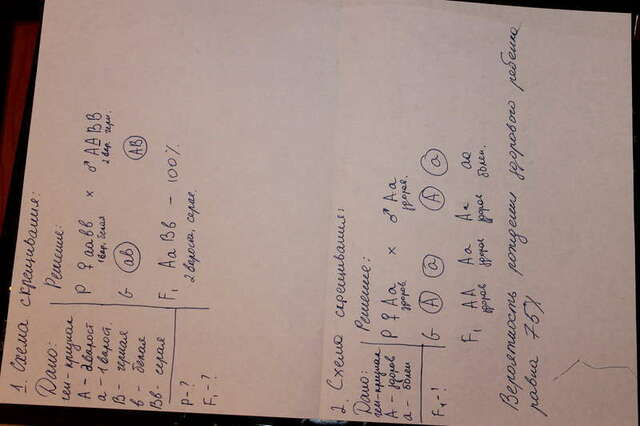 1. Схема скрещивания:
Дано:
ген-признак
А - 2 ворост
а - 1 ворост.
В - черная
в - белая
Вв - серая
Р - ?
F₁ - ?
Решение:
Р ♀ аавв × ♂ ААВВ
1 вор. белая 2 вор. черн.
G ав АВ
F₁ АаВв - 100%
2 вороста, серая.
2. Схема скрещивания:
Дано:
ген-признак
А - здоров
а - болен
F₁ - ?
Решение:
Р ♀ Аа × ♂ Аа
здоров здоров.
G А а А а
F₁ АА Аа Аа аа
здоров здоров здоров болен.
Вероятность рождения здорового ребенка
равна 75%